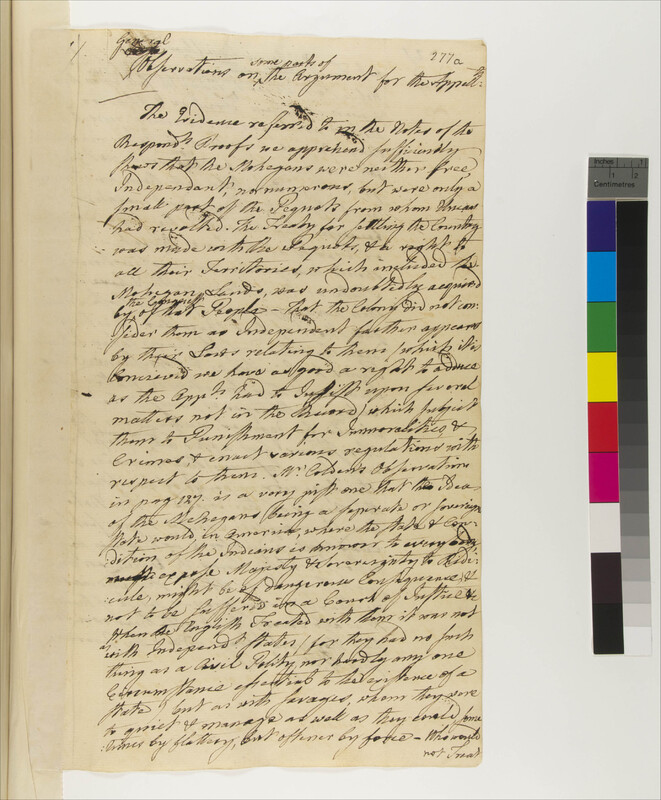 General
277a
some parts of
Observations on the Argument for the Appellts.
The Evidence referred to in the Notes of the
Respondts. Proofs we apprehend sufficiently
shews that the Mohegans were neither free,
Independant, nor numerous, but were only a
small part of the Pequots from whom Uncas
had revolted. The Treaty for settling the Country
was made with the Pequots, & a right to
all their Territories, which included the
Mohegan Lands, was undoubtedly acquired
by the Conquest of that People – That the Colony did not con-
sider them as Independent farther appears
by their Laws relating to them (which it is
Conceived we have as good a right to adduce
as the Appts. had to Insist upon several
matters not in the Record) which subject
them to Punishment for Immoralities &
Crimes, & enact various regulations with
respect to them. Mr. Colden's Observation
in pag 127. is a very just one that the Idea
of the Mohegans being a separate or sovereign
State would in America, where the State & Con-
dition of the Indians is known to every body
expose Majesty & Sovereignty to Ridi-
cule, might be of dangerous Consequence, &
not to be suffer'd in a Court of Justice &
when the English Treated with them it was not
with Independt. States (for they had no such
thing as a Civil Polity, nor hardly any one
Circumstance essential to the existence of a
State but as with savages, whom they were
to quiet & manage as well as they could, some
times by flattery, but oftener by force – Who would
not Treat